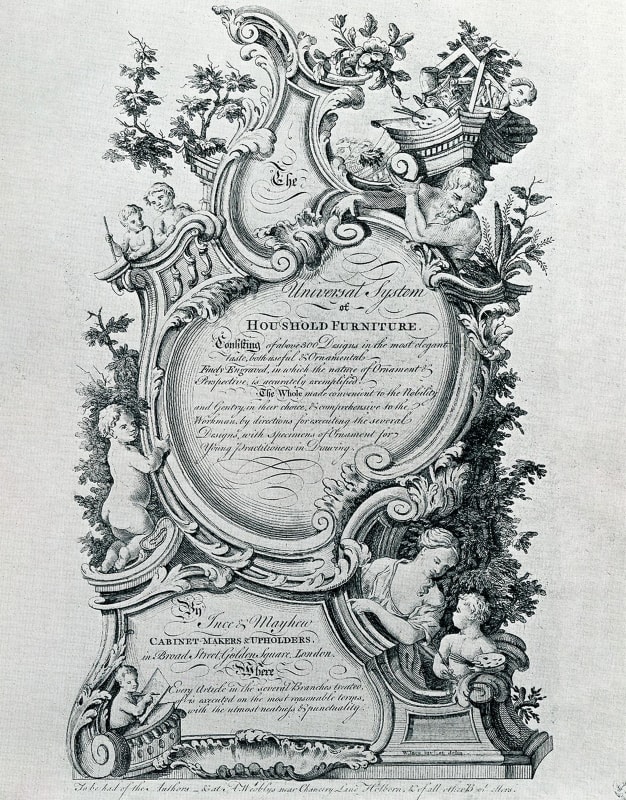 The
Universal System
of
HOUSHOLD FURNITURE.
Consisting of above 300 Designs in the most elegant
taste, both useful & Ornamental
Finely Engraved, in which the nature of Ornament &
Perspective, is accurately exemplified.
The Whole made convenient to the Nobility
and Gentry, in their choice, & comprehensive to the
Workman, by directions for executing the several
Designs, with Specimens of Ornament for
Young Practitioners in Drawing.
By Ince & Mayhew
CABINET-MAKERS & UPHOLDERS,
in Broad Street, Golden Square, London.
Where
Every Article in the several Branches treated
of, is executed on the most reasonable terms,
with the utmost neatness & punctuality.
To be had of the Authors & at Webblys near Chancery Lane Holborn, & of all other